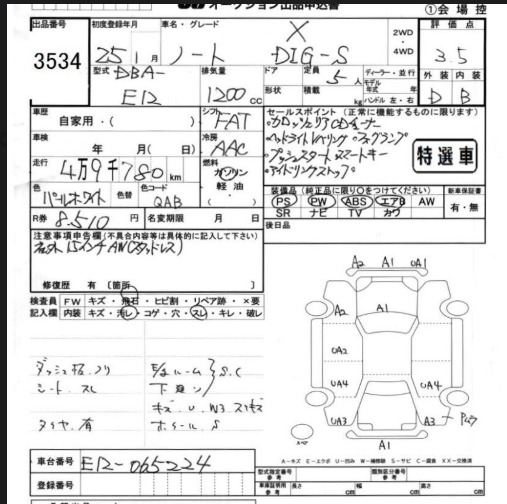 オークション出品申込書 ①会場控
出品番号 初度登録年月 車名・グレード 2WD・4WD 評価点
3534 25年1月 ノート X DIG-S 3.5
型式 DBA-E12 排気量 1200cc ドア 形状 定員 5人 積載 kg ディーラー・並行 モデル年式 年式 ハンドル 左・右 外装 D 内装 B
車歴 自家用・( ) シフト FAT セールスポイント(正常に機能するものに限ります)
車検 年 月( 日) 冷房 AAC ・カロッツェリアCDチューナー
・ヘッドライトレベリング ・フォグランプ
走行 4万9千780km 燃料 ガソリン・軽油・( ) ・プッシュスタート ・スマートキー
・アイドリングストップ 特選車
色 パールホワイト 色替 色コード QAB 装備品(純正品に限り○をつけてください) 新車保証書
PS PW ABS エアB AW 有・無
SR ナビ TV カワ
R券 8510円 名変期限 月 日 後日品
注意事項申告欄(不具合内容等は具体的に記入して下さい)
15インチAW(スタッドレス)
修復歴 有〔箇所 〕
検査員 FW キズ・飛石・ヒビ割・リペア跡・×要
記入欄 内装 キズ・汚レ・コゲ・穴・スレ・キレ・破レ
A2 A1 UA1
A2 A1
UA2
UA4 UA4
UA3 A3
A1
E/gルーム S.C
シート.スレ 下廻り
タイヤ.有 ホイール.S
スペア
A-キズ E-エクボ U-凹み W-補修跡 S-サビ C-腐食 XX-交換済
車台番号 E12-065224 型式指定番号 参考 類別区分番号 参考
登録番号 車庫証明用 参考 長さ cm 幅 cm 高さ cm